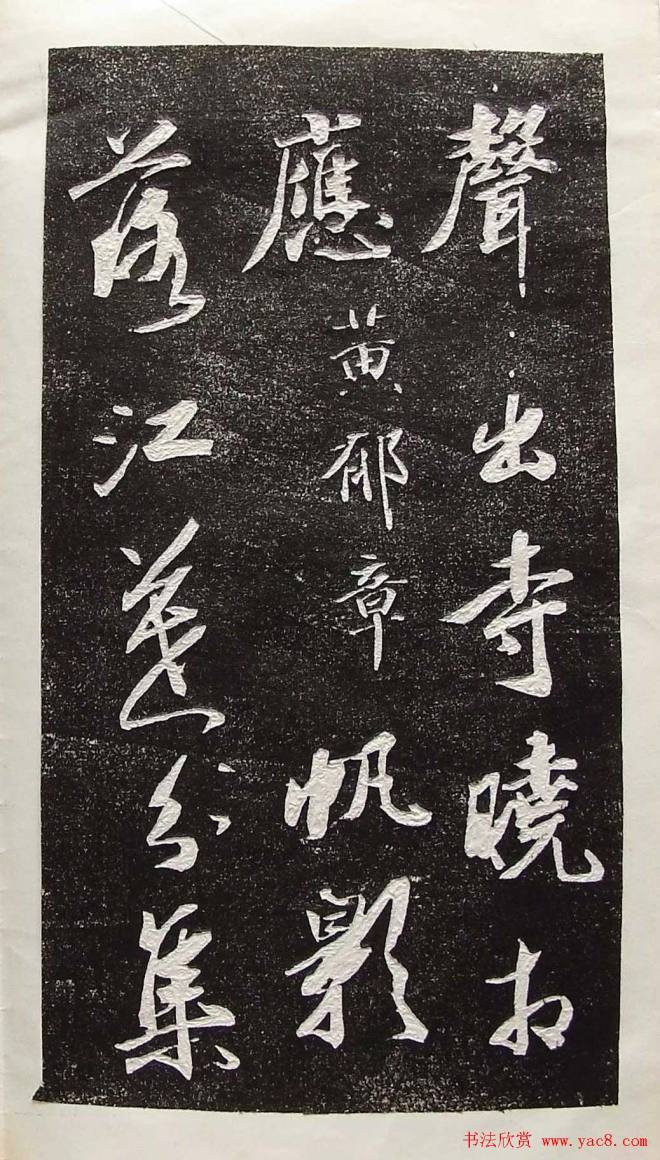 聲出寺曉相
應黄郁章帆影
落江
分集
书法欣赏 www.yac8.com